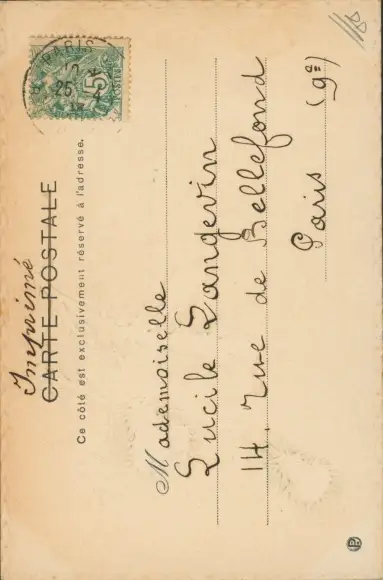 Imprimé
CARTE POSTALE
Ce côté est exclusivement réservé à l'adresse.
PARIS
25
5
Mademoiselle
Lucile Langevin
14, rue de Bellefond
Paris (9e)